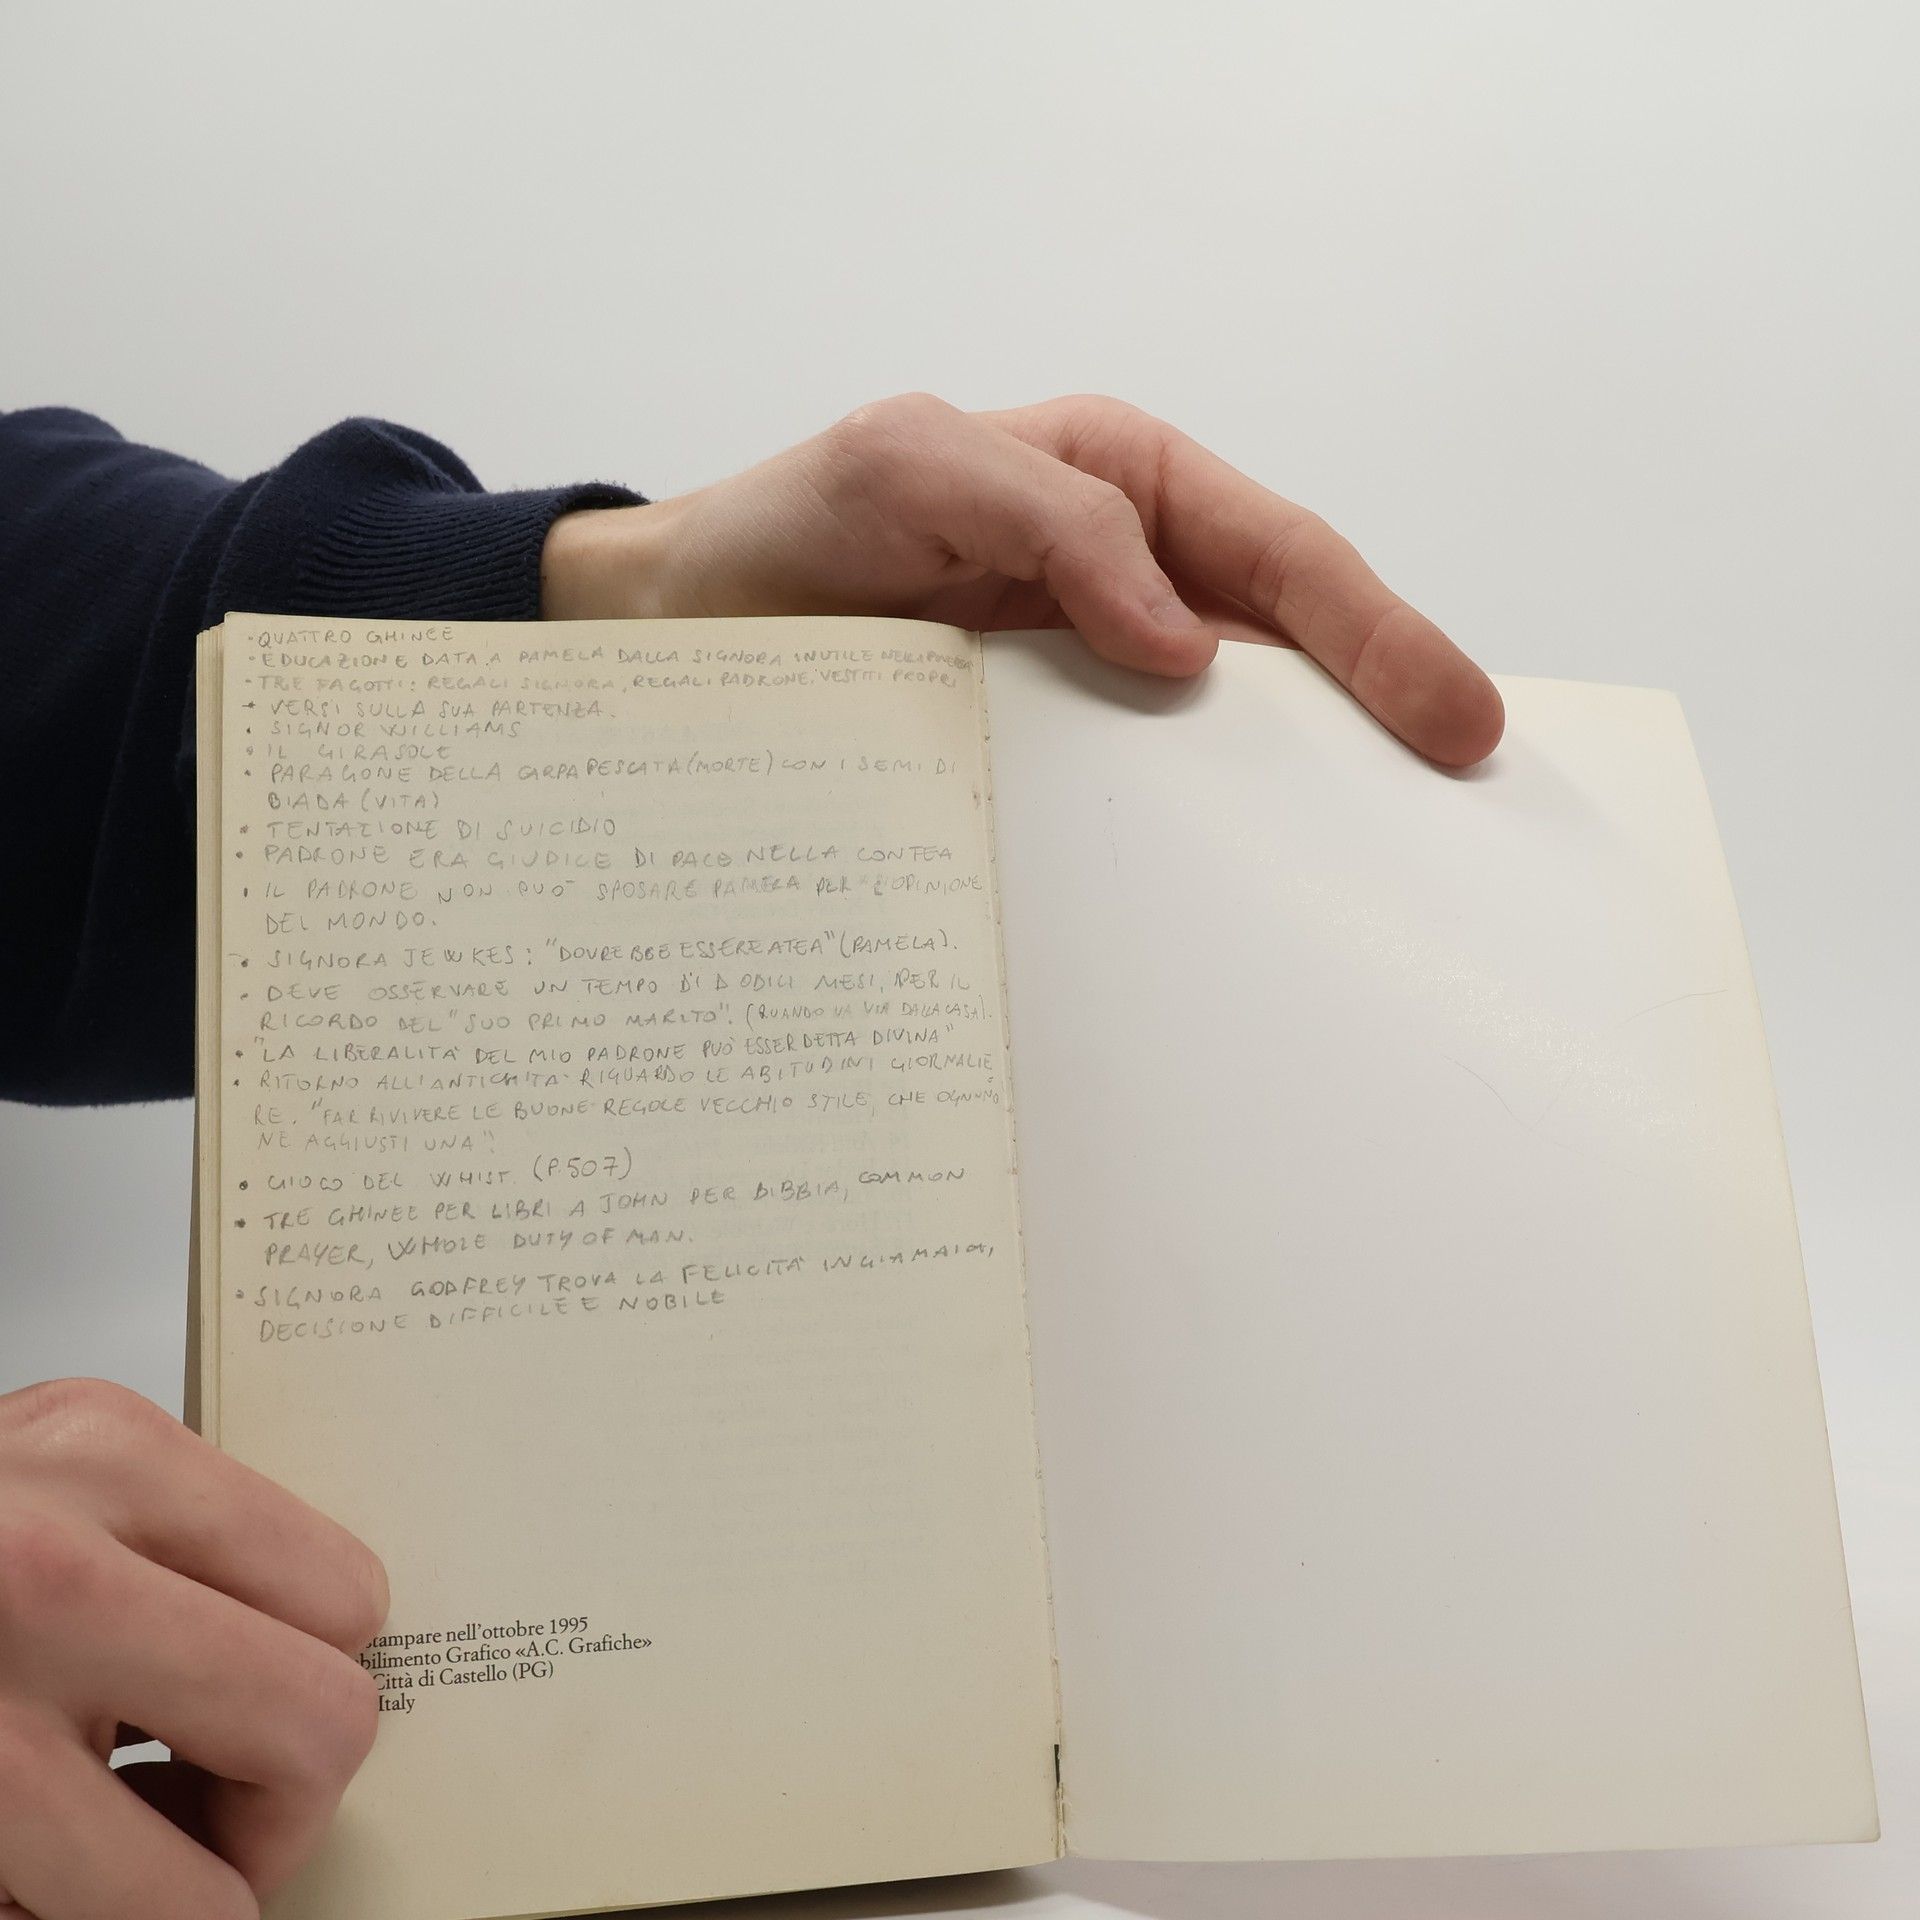 · QUATTRO GHINEE
· EDUCAZIONE DATA A PAMELA DALLA SIGNORA INUTILE NELLA POVERTÀ
· TRE FAGOTTI: REGALI SIGNORA, REGALI PADRONE, VESTITI PROPRI
· VERSI SULLA SUA PARTENZA.
· SIGNOR WILLIAMS
· IL GIRASOLE
· PARAGONE DELLA CARPA PESCATA (MORTE) CON I SEMI DI
BIADA (VITA)
· TENTAZIONE DI SUICIDIO
· PADRONE ERA GIUDICE DI PACE NELLA CONTEA
· IL PADRONE NON PUÒ SPOSARE PAMELA PER "L'OPINIONE
DEL MONDO.
· SIGNORA JEWKES: "DOVREBBE ESSERE ATEA" (PAMELA).
· DEVE OSSERVARE UN TEMPO DI DODICI MESI, PER IL
RICORDO DEL "SUO PRIMO MARITO". (QUANDO VA VIA DALLA CASA).
· "LA LIBERALITÀ DEL MIO PADRONE PUÒ ESSER DETTA DIVINA"
· RITORNO ALL'ANTICHITÀ RIGUARDO LE ABITUDINI GIORNALIE
RE. "FAR RIVIVERE LE BUONE REGOLE VECCHIO STILE, CHE OGNUNO
NE AGGIUSTI UNA".
· GIOCO DEL WHIST. (P.507)
· TRE GHINEE PER LIBRI A JOHN PER BIBBIA, COMMON
PRAYER, WHOLE DUTY OF MAN.
· SIGNORA GODFREY TROVA LA FELICITÀ IN GIAMAICA,
DECISIONE DIFFICILE E NOBILE
stampare nell'ottobre 1995
bilimento Grafico «A.C. Grafiche»
Città di Castello (PG)
Italy